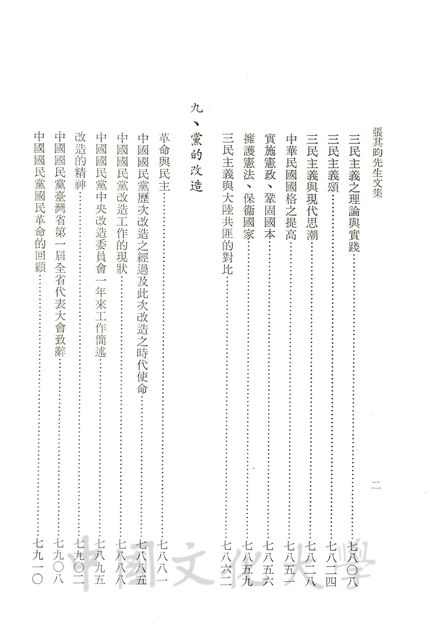 張其昀先生文集
二
三民主義之理論與實踐……七八〇八
三民主義頌……七八二四
三民主義與現代思潮……七八二八
中華民國國格之提高……七八五一
實施憲政、鞏固國本……七八五六
擁護憲法、保衞國家……七八五九
三民主義與大陸共匪的對比……七八六二
九、黨的改造
革命與民主……七八八一
中國國民黨歷次改造之經過及此次改造之時代使命……七八八五
中國國民黨改造工作的現狀……七八八八
中國國民黨中央改造委員會一年來工作簡述……七八九五
改造的精神……七九〇二
中國國民黨臺灣省第一屆全省代表大會致辭……七九〇八
中國國民黨國民革命的回顧……七九一〇
中國文化大學